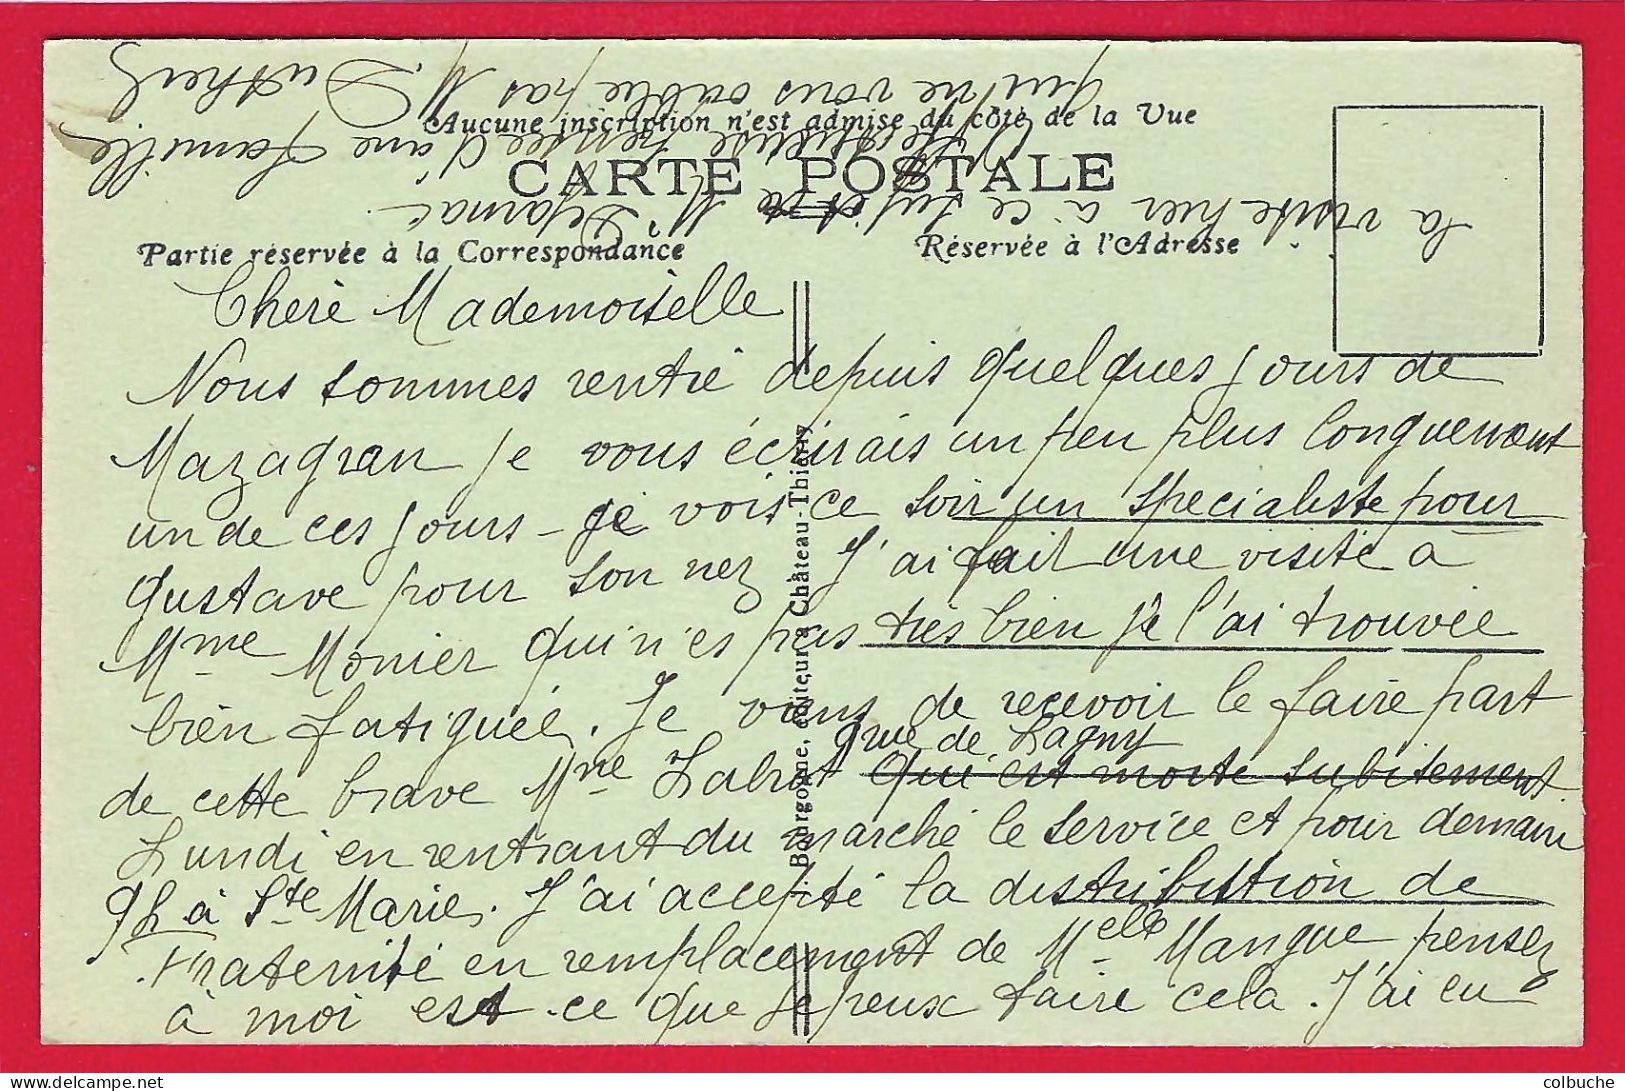 Aucune inscription n'est admise du côté de la Vue
CARTE POSTALE
Partie réservée à la Correspondance
Réservée à l'Adresse
Chère Mademoiselle
Nous sommes rentré depuis quelques jours de
Mazagran je vous écrirais un peu plus longuement
un de ces jours - je vois ce soir un specialiste pour
Gustave pour son nez J'ai fait une visite à
Mme Monier qui n'es pas très bien je l'ai trouvée
bien fatiguée. Je viens de recevoir le faire part
rue de Lagny
de cette brave Mme Labrot qui est morte subitement
Lundi en rentrant du marché le service et pour demain
9h à Ste Marie. J'ai accepté la distribution de
Fraternité en remplacement de Melle Mangue pensez
à moi est-ce que je peux faire cela. J'ai eu
la visite hier à ce sujet de M Dejarnac
Affectueuse pensée d'une famille
qui ne vous oublie pas M. Dutheil
Bourgogne, éditeur à Château-Thierry
colbuche